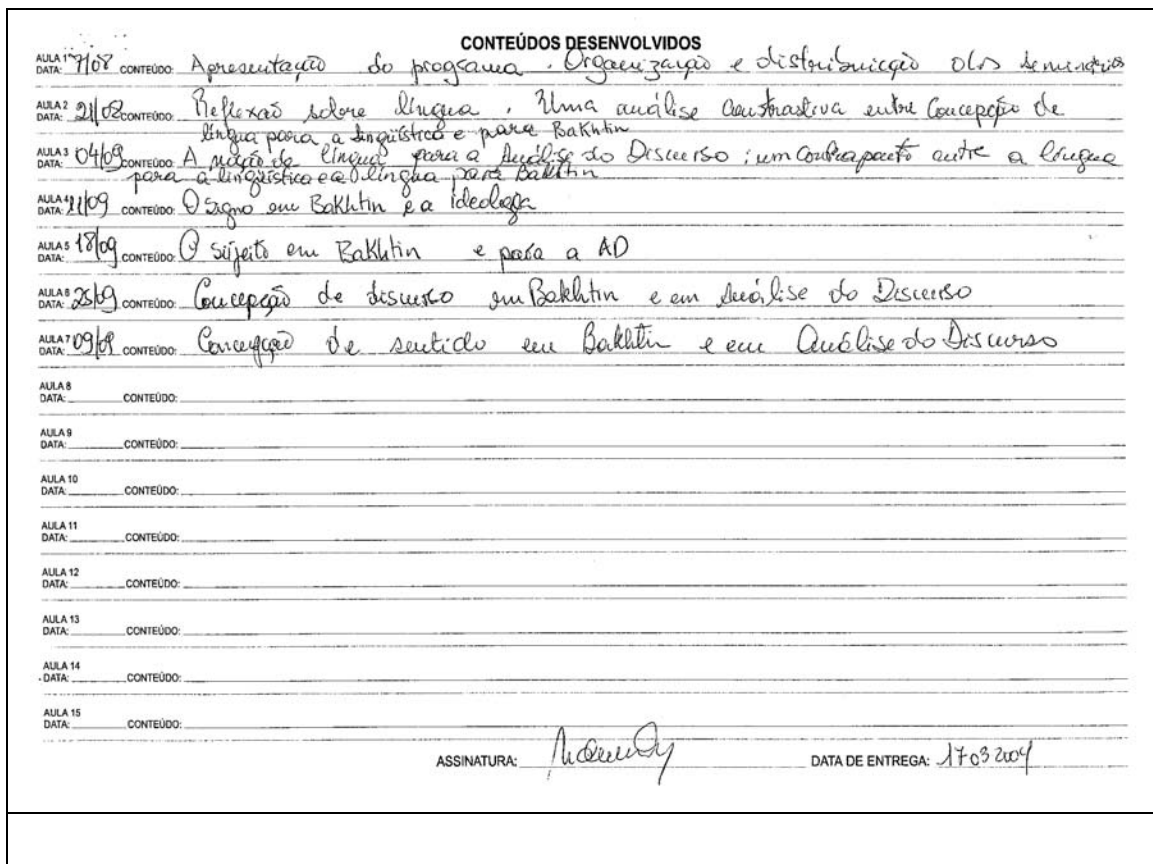 CONTEÚDOS DESENVOLVIDOS
AULA 1 DATA: 17/08 CONTEÚDO: Apresentação do programa. Organização e distribuição dos seminários
AULA 2 DATA: 21/08 CONTEÚDO: Reflexão sobre língua. Uma análise contrastiva entre Concepção de
língua para a lingüística e para Bakhtin
AULA 3 DATA: 04/09 CONTEÚDO: A noção de língua para a Análise do Discurso: um contraponto entre a língua
para a lingüística e a língua para Bakhtin
AULA 4 DATA: 11/09 CONTEÚDO: O signo em Bakhtin e a ideologia
AULA 5 DATA: 18/09 CONTEÚDO: O sujeito em Bakhtin e para a AD
AULA 6 DATA: 25/09 CONTEÚDO: Concepção de discurso em Bakhtin e em Análise do Discurso
AULA 7 DATA: 09/09 CONTEÚDO: Concepção de sentido em Bakhtin e em Análise do Discurso
AULA 8 DATA: CONTEÚDO:
AULA 9 DATA: CONTEÚDO:
AULA 10 DATA: CONTEÚDO:
AULA 11 DATA: CONTEÚDO:
AULA 12 DATA: CONTEÚDO:
AULA 13 DATA: CONTEÚDO:
AULA 14 DATA: CONTEÚDO:
AULA 15 DATA: CONTEÚDO:
ASSINATURA: DATA DE ENTREGA: 17 03 2004